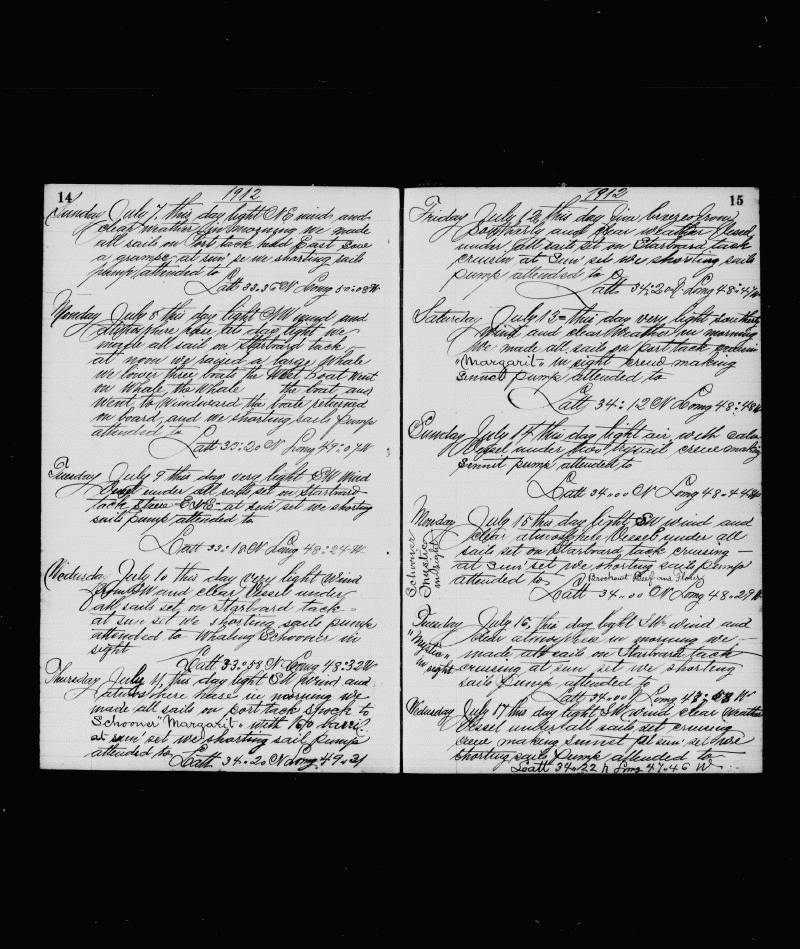 14
1912
Sunday July 7, this day light NE wind and
clear weather in morning we made
all sails on Port tack had East
a at sun set we shorting sails
pump attended to
Latt 33.36 N Long 50:08 W
Monday July 8 this day light wind and
day light we
made all sail on Starboard tack
at noon we raised a large Whale
we lower three boats the West boat went
on Whale the Whale the boat and
went to Windward the boate returned
on board, and we shorting sails Pump
attended to
Latt 33:20 N Long 49:07 W
Tuesday July 9 this day very light SW Wind
Vessel under all sails set on Starboard
tack, Steve ENE at sun set we shorting
sails pump attended to
Latt 33:18 N Long 48:24 W
Wednesda July 10 this day very light wind
from SW and clear Vessel under
all sails set on Starboard tack
at sun set we shorting sails pump
attended to Whaling Schooner in
sight
Latt 33:58 N Long 48:32 W
Thursday July 11, this day light SW wind and
hase in morning we
made all sails on port tack spock to
Schooner "Margarit" with 160 barri
at sun set we shorting sail pump
attended to Latt 34.20 N Long 49.31
15
1912
Friday July 12 this day fine breeze from
and clear weather Vessel
under all sails set on Starboard tack
cruisin at Sun set we shorting sails
pump attended to
Latt 34:20 N Long 48:47 W
Saturday July 13 this day very light southerly
wind and clear Weather in morning
We made all sails on port tack
"Margarit" in sight crew making
sinnet pump attended to
Latt 34:12 N Long 48:48 W
Sunday July 14 this day light air with calm
Vessel under crew making
Sinnit pump attended to
Latt 34.00 N Long 48.44 W
Monday July 15 this day light SW wind and
clear atmosphere Vessel under all
sails set on Starboard tack cruising
at Sun set we shorting sails Pump
attended to Breckout Beef and Flour
Latt 34.00 N Long 48.29 W
Schooner
Mystic
in sight
Tuesday July 16, this day light SW wind and
clear atmosphire in morning we
made all sails on Starboard tack
cruising at sun set we shorting
sails Pump attended to
Latt 34.00 N Long 48:58 W
"Mystic"
in sight
Wednesday July 17 this day light SW wind clear Weather
Vessel under all sails set cruising
crew making sinnet at sun set
shorting sails Pump attended to
Latt 34.22 N Long 47.46 W